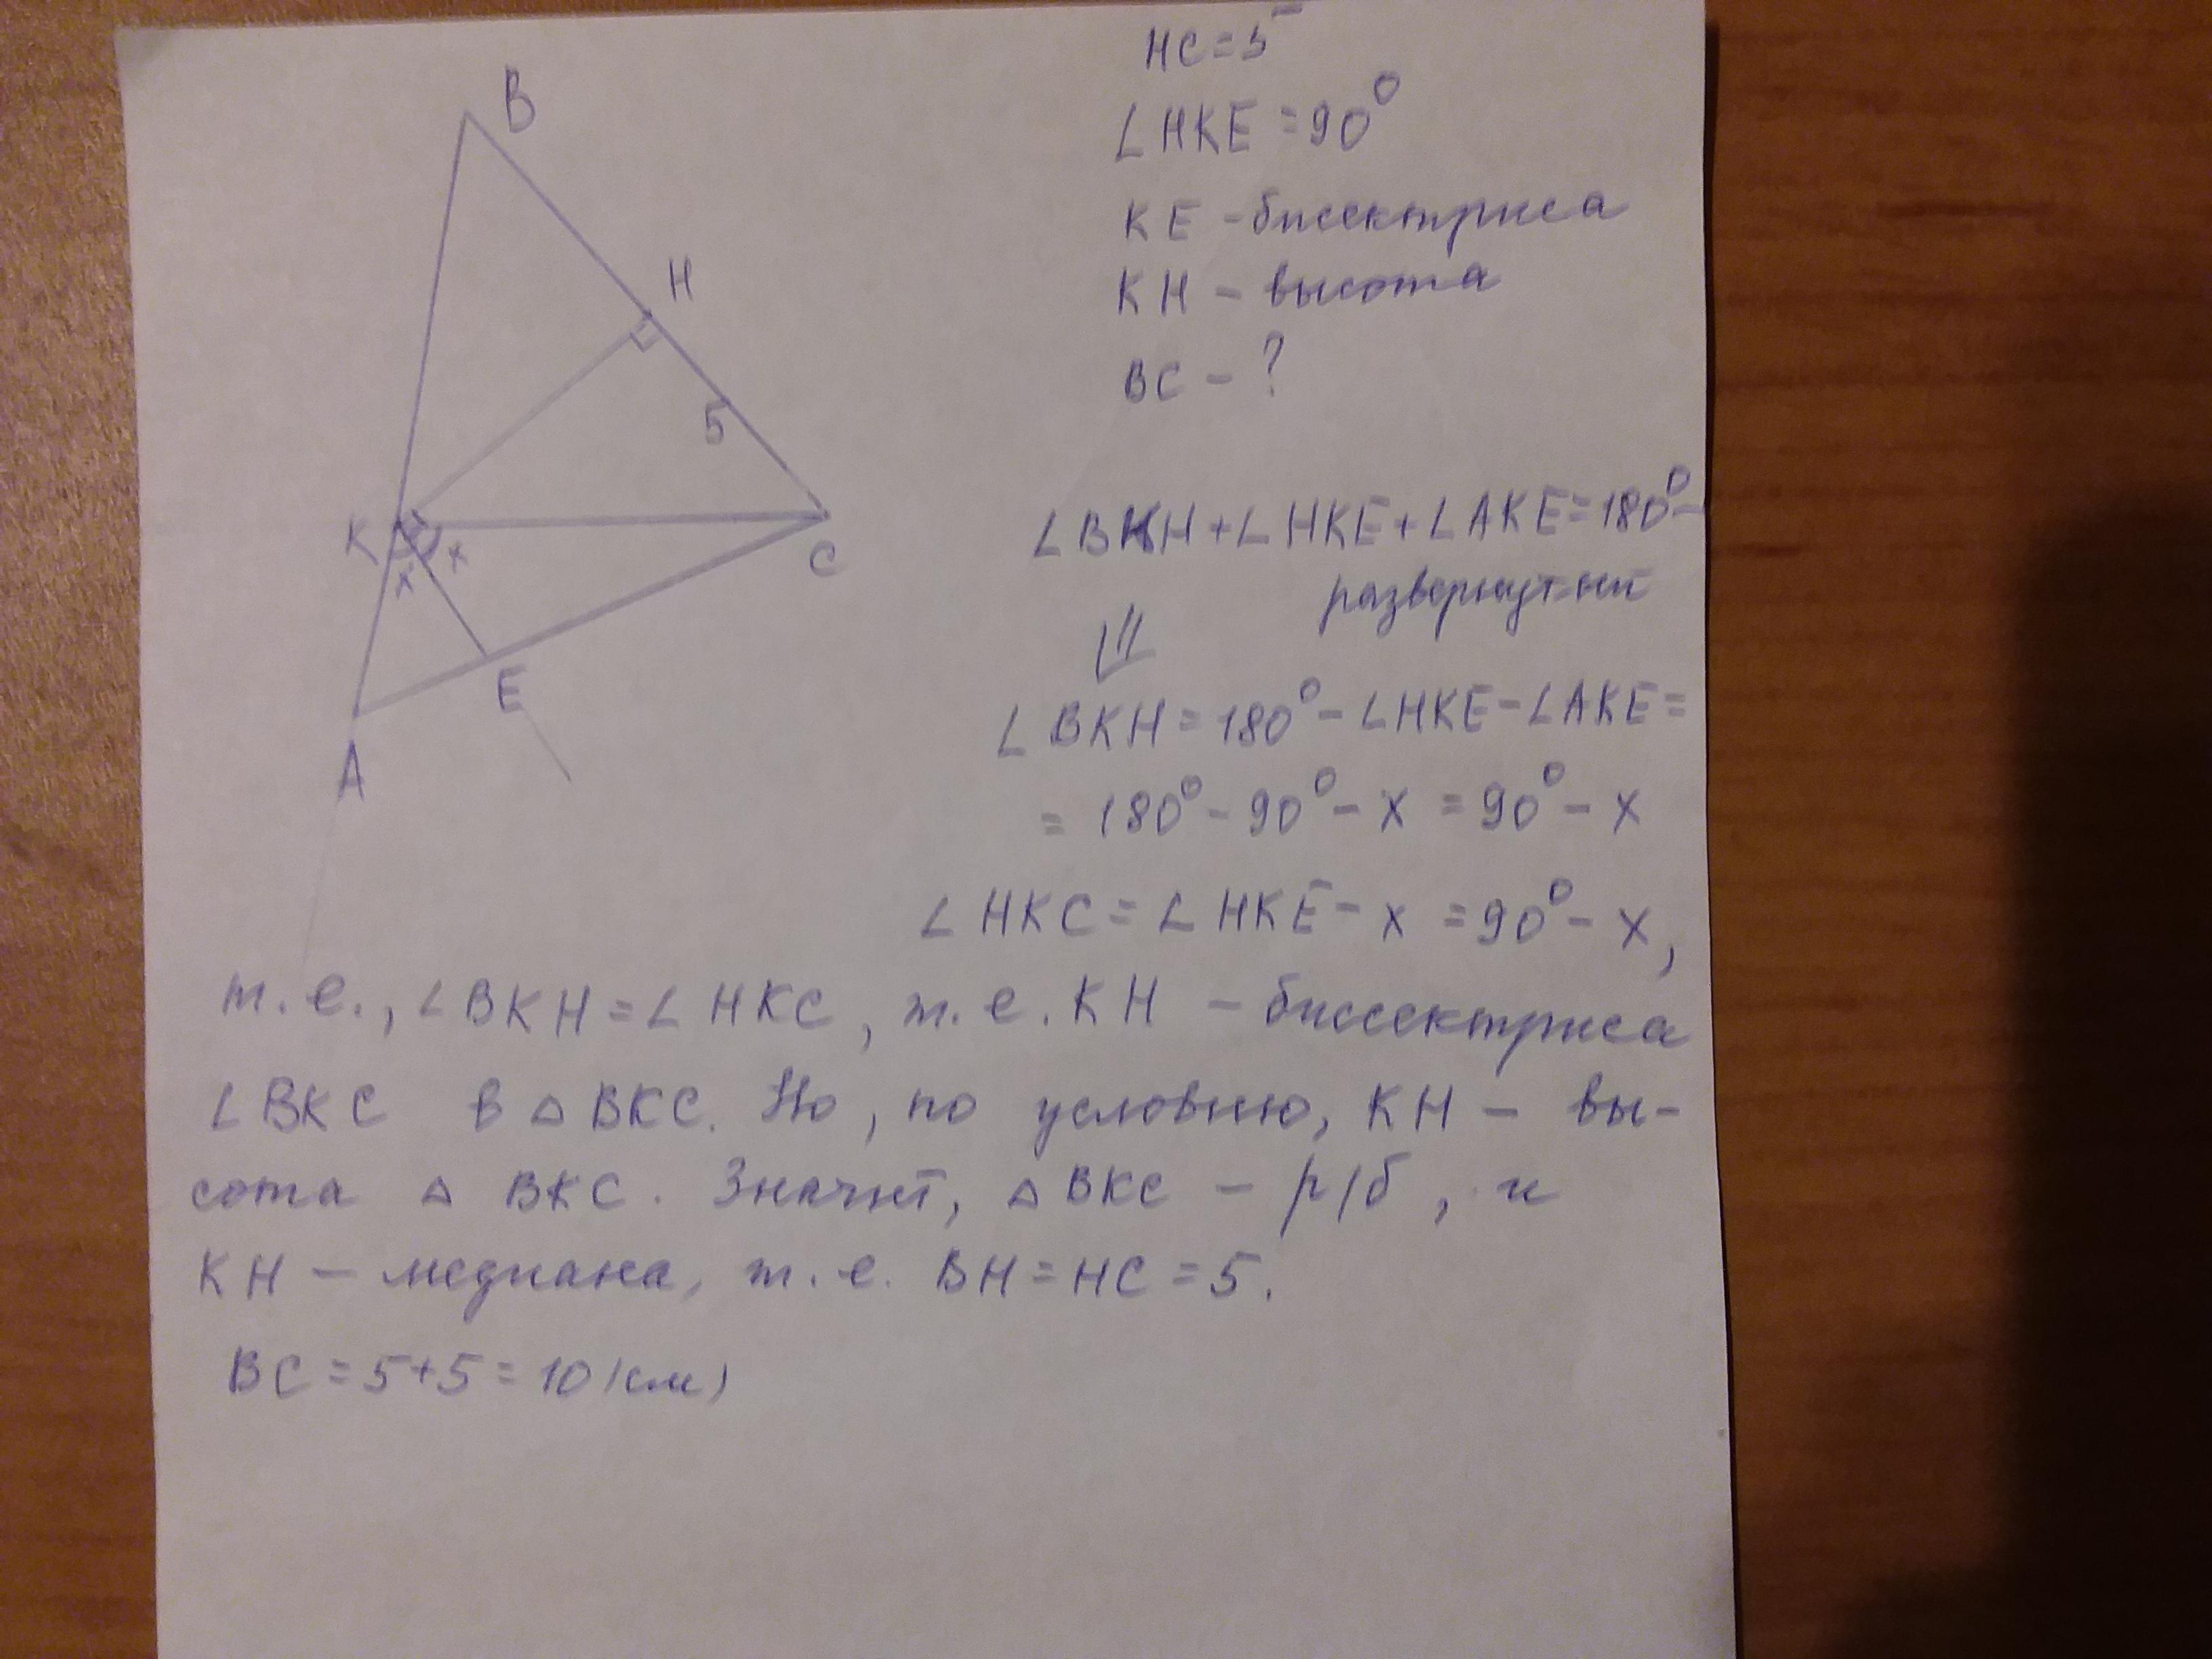 B
H
5
K
x
x
C
E
A
HC = 5
∠HKE = 90°
KE - биссектриса
KH - высота
BC - ?
∠BKH + ∠HKE + ∠AKE = 180° -
развернутый
⇓
∠BKH = 180° - ∠HKE - ∠AKE =
= 180° - 90° - x = 90° - x
∠HKC = ∠HKE - x = 90° - x,
т.е., ∠BKH = ∠HKC, т.е. KH - биссектриса
∠BKC в △BKC. Но, по условию, KH - вы-
сота △ BKC. Значит, △BKC - р/б, и
KH - медиана, т.е. BH = HC = 5.
BC = 5 + 5 = 10 (см)